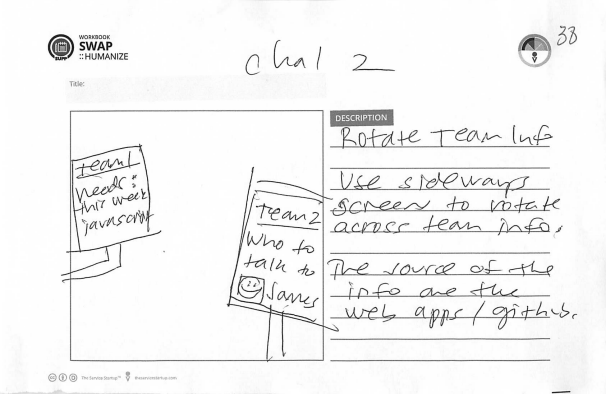 WORKBOOK
SWAP
::HUMANIZE
chal 2
38
Title:
team1
needs:
this week
javascript
team2
who to
talk to
James
DESCRIPTION
Rotate Team Info
Use sideways
screen to rotate
across team info.
The source of the
info are the
web apps/github.
The Service Startup™
theservicestartup.com